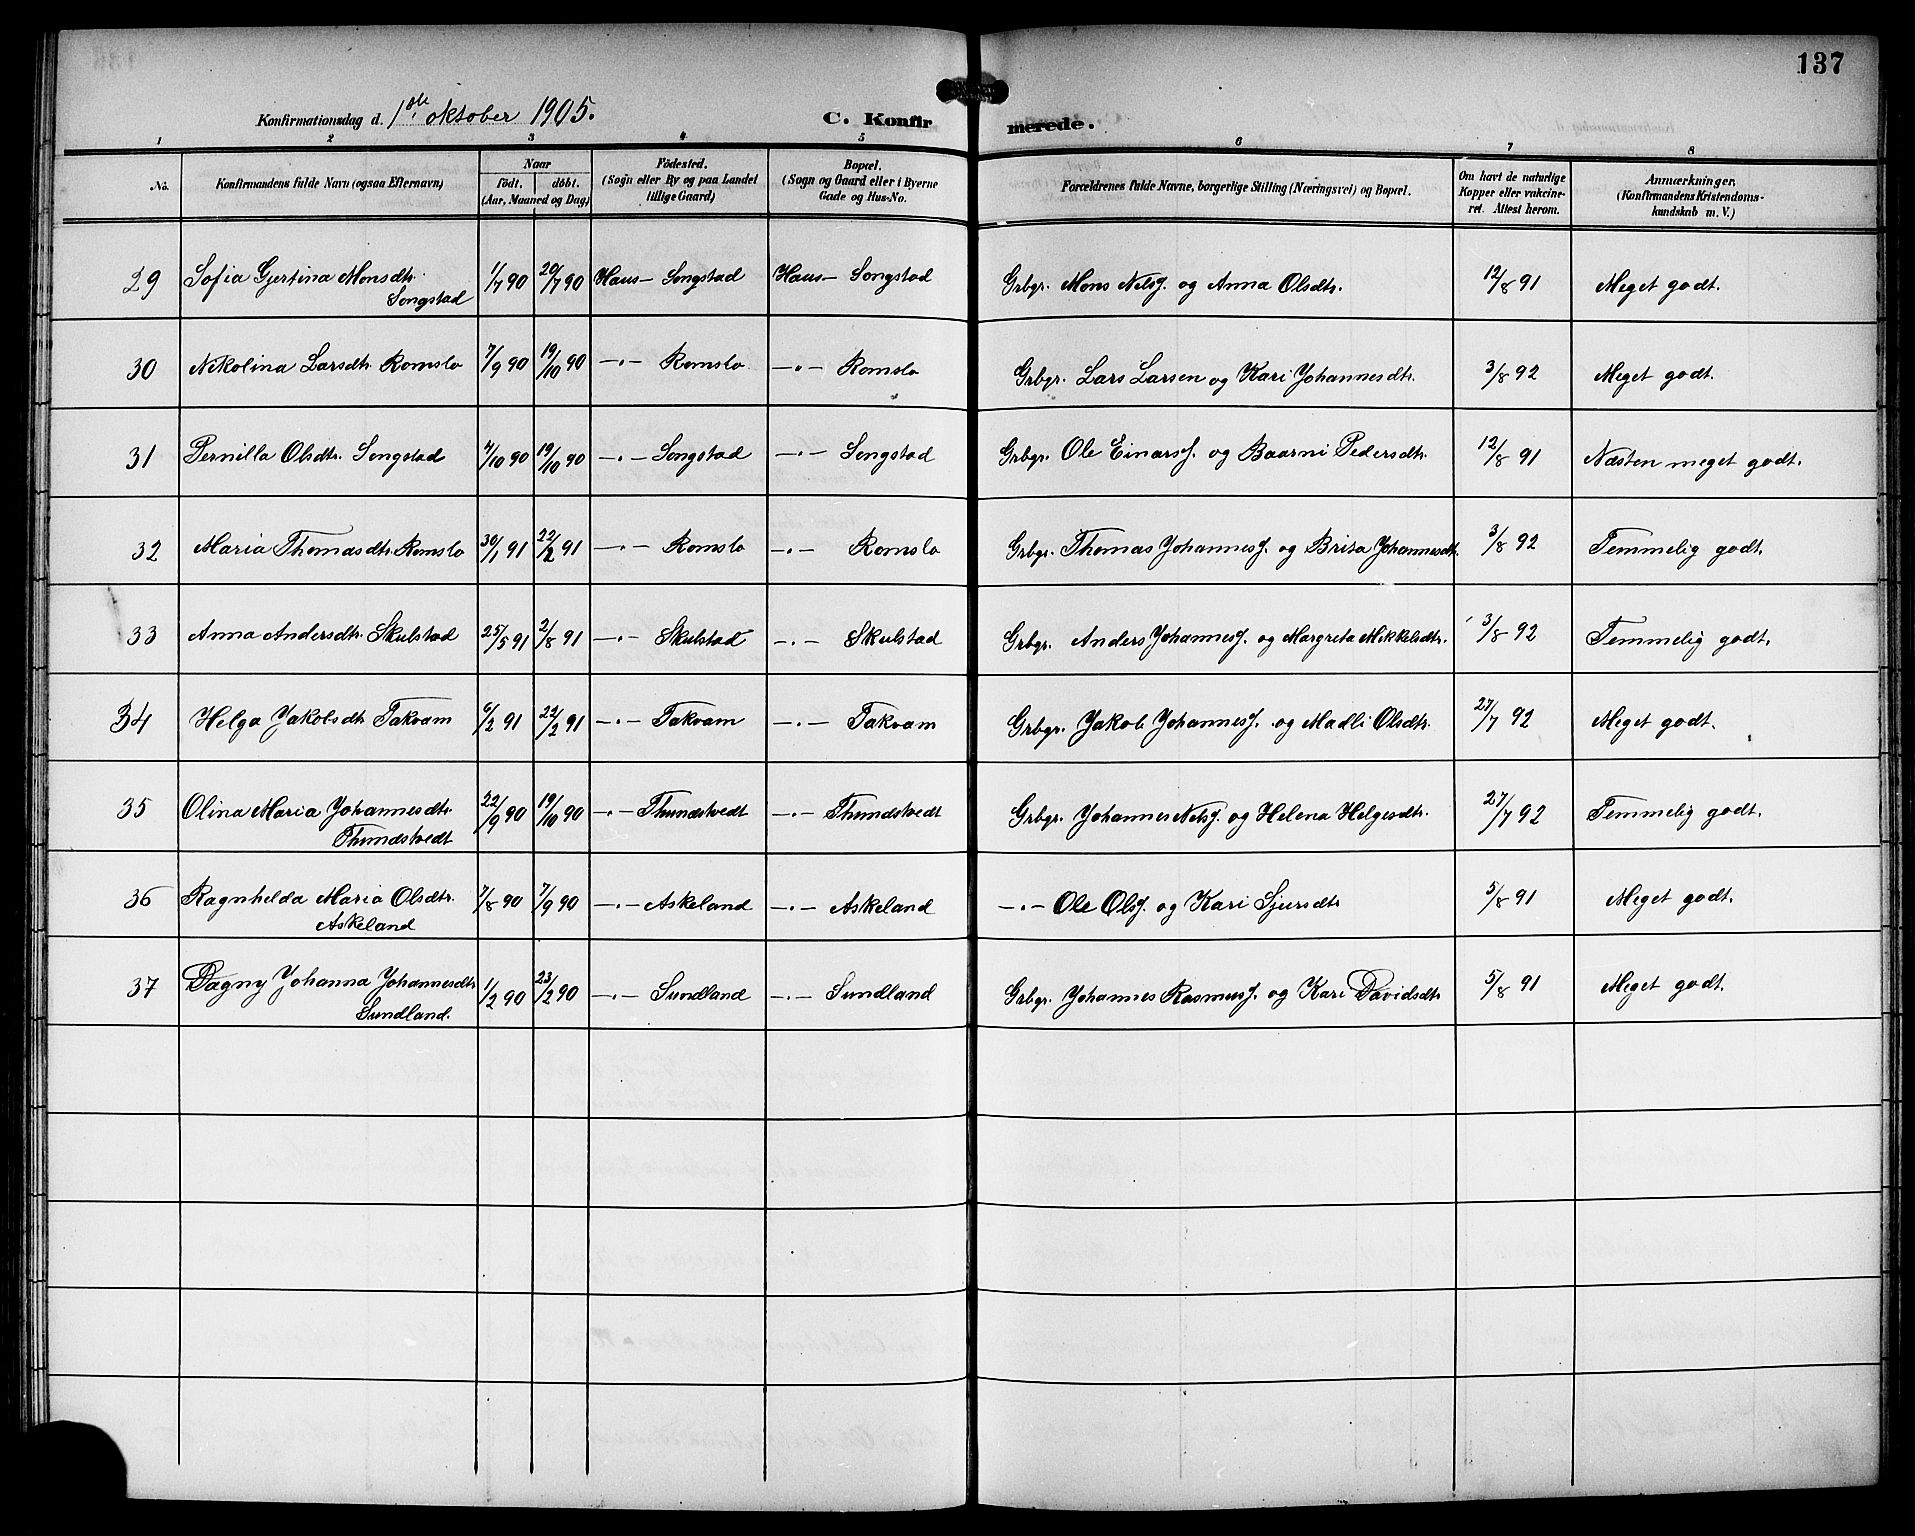 137
Konfirmationsdag d. 1ste oktober 1905.
C. Konfirmerede.
1 2 3 4 5 6 7 8
No. Konfirmandens fulde Navn (ogsaa Efternavn) Naar født, døbt. (Aar, Maaned og Dag) Fødested. (Sogn eller By og paa Landet tillige Gaard) Bopæl. (Sogn og Gaard eller i Byerne Gade og Hus-No. Forældrenes fulde Navne, borgerlige Stilling (Næringsvei) og Bopæl. Om havt de naturlige Kopper eller vakcineret. Attest herom. Anmærkninger. (Konfirmandens Kristendomskundskab m. V.)
29 Sofia Gjertina Monsdtr. Songstad 1/7 90 20/7 90 Haus - Songstad Haus - Songstad Grbgr. Mons Nilsf. og Anna Olsdtr. 12/8 91 Meget godt.
30 Nikolina Larsdtr. Romslo 7/9 90 19/10 90 -"- Romslo -"- Romslo Grbgr. Lars Larsen og Kari Johannesdtr. 3/8 92 Meget godt.
31 Pernilla Olsdtr. Songstad 4/10 90 19/10 90 -"- Songstad -"- Songstad Grbgr. Ole Einarsf. og Baarni Pedersdtr. 12/8 91 Næsten meget godt.
32 Maria Thomasdtr. Romslo 30/1 91 22/2 91 -"- Romslo -"- Romslo Grbgr. Thomas Johannesf. og Brita Johannesdtr. 3/8 92 Temmelig godt.
33 Anna Andersdtr. Skulstad 25/5 91 2/8 91 -"- Skulstad -"- Skulstad Grbgr. Anders Johannesf. og Margreta Mikkelsdtr. 3/8 92 Temmelig godt.
34 Helga Jakobsdtr. Takvam 6/2 91 22/2 91 -"- Takvam -"- Takvam Grbgr. Jakob Johannesf. og Madli Olsdtr. 27/7 92 Meget godt.
35 Olina Maria Johannesdtr. Thundstvedt 22/9 90 19/10 90 -"- Thundstvedt -"- Thundstvedt Grbgr. Johannes Nilsf. og Helena Helgesdtr. 27/7 92 Temmelig godt.
36 Ragnhelda Maria Olsdtr. Askeland 7/8 90 7/9 90 -"- Askeland -"- Askeland -"- Ole Olsf. og Kari Sjursdtr 5/8 91 Meget godt.
37 Dagny Johanna Johannesdtr Sundland. 1/2 90 23/2 90 -"- Sundland -"- Sundland Grbgr. Johannes Rasmusf. og Kari Davidsdtr 5/8 91 Meget godt.